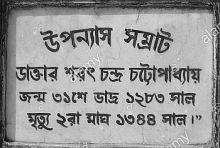 উপন্যাস সম্রাট
ডাক্তার শরৎ চন্দ্র চট্টোপাধ্যায়
জন্ম ৩১শে ভাদ্র ১২৮৩ সাল
মৃত্যু ২রা মাঘ ১৩৪৪ সাল।"